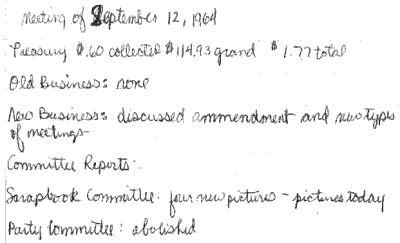 Meeting of September 12, 1964
Treasury $.60 collected $114.93 grand $1.77 total
Old Business: none
New Business: discussed ammendment and new types
of meetings-
Committee Reports-.
Scrapbook Committee: four new pictures - pictures today
Party Committee: abolished